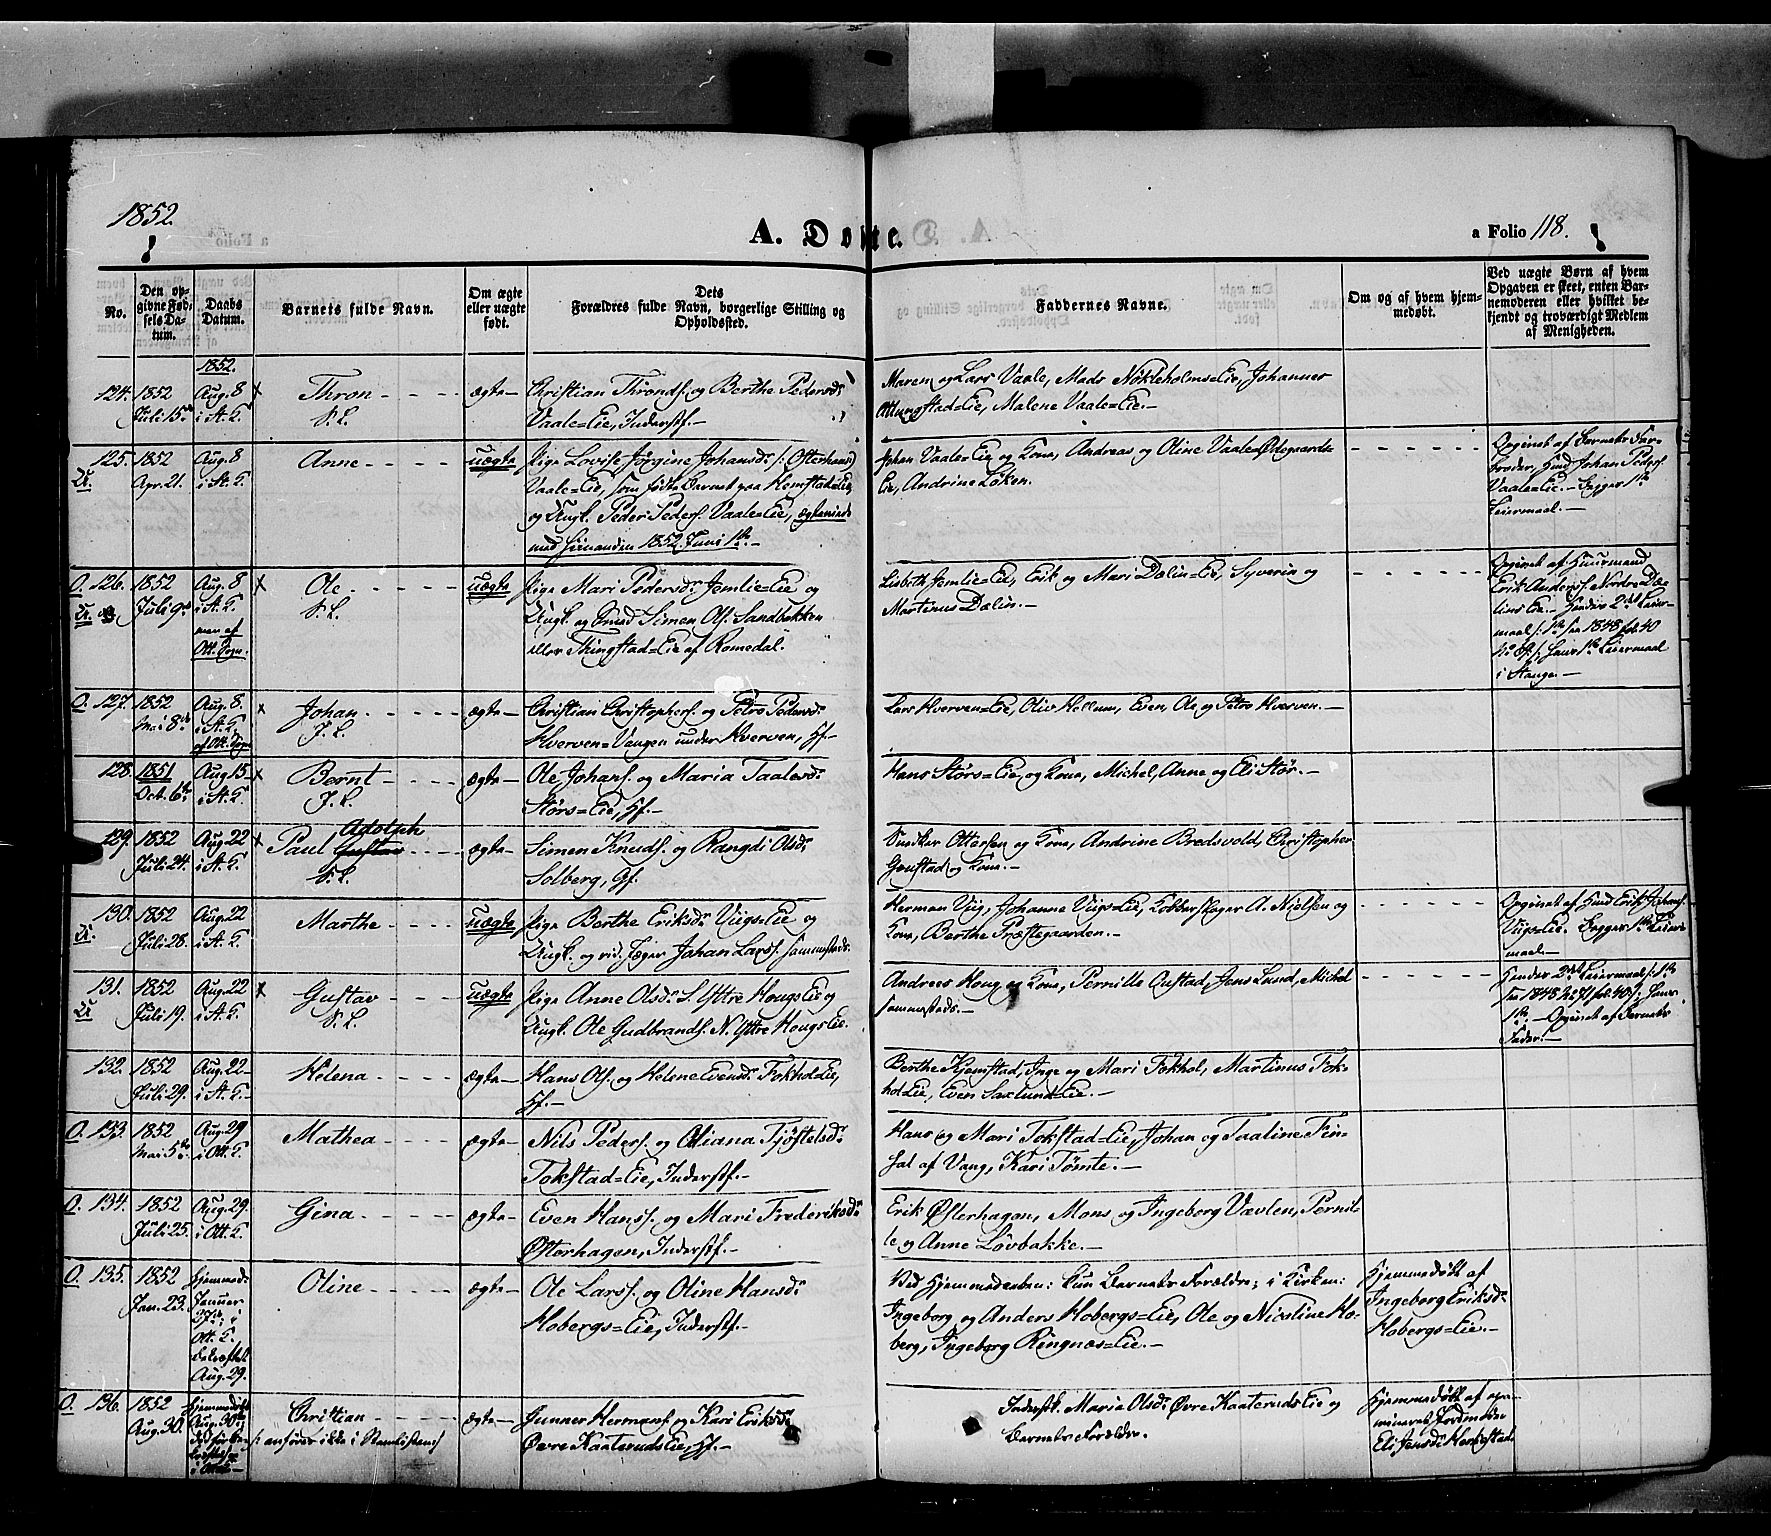 1852.
A. Døbte.
a Folio 118.
No.
Den opgivne Fødselsdatum.
Daabs Datum.
Barnets fulde Navn.
Om ægte eller uægte født.
Dets Forældres fulde Navn, borgerlige Stilling og Opholdssted.
Faddernes Navne.
Om og af hvem hjemmedøbt.
Ved uægte Børn af hvem Opgaven er skeet, enten Barnemoderen eller hvilket bekjendt og troværdigt Medlem af Menigheden.
1852.
124. 1852 Aug. 8 x Thron ægte Christian Thronds. og Berthe Pedersd. Maren og Lars Vaale, Mads Nøkleholms=Eie, Johannes
Juli 15de i St. K. S. L. Vaale=Eie, Inderstf. Ottungstad=Eie, Malene Vaale=Eie.
125. 1852 Aug. 8 Anne uægte Pige Lovise Jørgine Johansd. Johan Vaale=Eie og Kone, Andreas og Oline Vaale=Ødegaards=
U. Apr. 21. i St. K. Vaale=Eie, som fødte Barnet paa Hemstad=Eie, Eie, Andrine Løken.
og Ungk. Peder Peders. Vaale=Eie, ægteviede
med hinanden 1852 Juni 1ste
Opgivet af Barnets Farbroder, Huusmd. Johan Peders.
Vaale=Eie. Begges 1ste
Leiermaal.
O. 126. 1852 Aug. 8 x Ole uægte Pige Mari Pedersd. Jemlie=Eie og Lisbeth Jemlie=Eie, Erik og Mari Dælin=Eie, Syverin og
U. Juli 9de i St. K. S. L. Ungk. og Smed Simen Ols. Sandbakken Martinus Dælin.
men af
Ott. Sogn.
eller Thingstad=Eie af Romedal.
Opgivet af Huusmand
Erik Anders. Nordre Dælins Eie. Hendes 2det Leiermaal 1ste see 1848 fol. 40
hans 1ste Leiermaal
i Stange.
O. 127. 1852 Aug. 8. x Johan ægte Christian Christophers. og Petra Pedersd. Lars Hverven=Eie, Oliv Hellum, Even, Ole og Petra Hverven.
Mai 8de i St. K. J. L. Hverven=Vangen under Hverven, Hf.
af Ott. Sogn
128. 1851 Aug. 15 x Bernt ægte Ole Johans. og Maria Taalesd. Hans Størs=Eie og Kone, Michel, Anne og Eli Stør.
Oct. 6te i St. K. J. L. Størs=Eie, Hf.
Adolph
129. 1852 Aug. 22 x Paul Gustav ægte Simen Knuds. og Rangdi Olsd. Snedker Ottersen og Kone, Andrine Bredsvold, Christopher
Juli 24. i St. K. S. L. Solberg, Gf. Gaustad og Kone.
130. 1852 Aug. 22 Marthe uægte Pige Berthe Eriksd. Viigs=Eie og Herman Viig, Johanne Viigs=Eie, Kobberslager A. Nielsen og
U. Juli 28. i St. K. Ungk. og rid. Jæger Johan Larss. Sammestads. Kone, Berthe Præstegaarden.
Opgivet af Huusmd. Erik Johans.
Viigs=Eie. Begges 1ste Leiermaal.
131. 1852 Aug. 22 x Gustav uægte Pige Anne Olsd. S. Yttre Hougs Eie og Andreas Houg og Kone, Pernille Oustad, Jens Lund, Michel
U Juli 19. i St. K. S. L. Ungk. Ole Gudbrands. N. Yttre Hougs Eie. Sammestads.
Hendes 2det Leiermaal 1ste
see 1848 No 71 fol. 40; Hans
1ste Opgivet af Barnets
Fader.
132. 1852 Aug. 22 Helena ægte Hans Ols. og Helene Evensd. Fokhol=Eie, Berthe Kjemstad, Inge og Mari Fokhol, Martinus Fok-
Juli 29. i St. K. Hf. hol=Eie, Even Saxlund=Eie.
O. 133. 1852 Aug. 29 Mathea ægte Nils Peders. og Oliana Tjøstelsd. Hans og Mari Tokstad=Eie, Johan og Taaline Fin-
Mai 5te i Ott. K. Tokstad=Eie, Inderstf. sal af Vang, Kari Tømte.
O. 134. 1852 Aug. 29. Gina ægte Even Hanss. og Mari Frederiksd. Erik Østerhagen, Mons og Ingeborg Vævlen, Pernil-
Juli 25. i Ott. K. Østerhagen, Inderstf. le og Anne Løvbakke.
O. 135. 1852 Hjemmed. Oline ægte Ole Larss. og Oline Hansd. Ved Hjemmedaaben: kun Barnets Forældre; i Kirken: Hjemmedøbt af
Jan. 23. Januar Hobergs=Eie, Inderstf. Ingeborg og Anders Hobergs=Eie, Ole og Nicoline Ho- Ingeborg Eriksd.
27de; i berg, Ingeborg Ringnæs=Eie. Hobergs=Eie.
Ott. K.
bekræftet
Aug. 29.
O. 136. 1852 Hjemmedøbt Christian ægte Gunner Hermans. og Kari Eriksd. Inderstk. Maria Olsd. Øvre Kaaterud=Eie og Hjemmedøbt af exa-
Aug. 30. Aug. 30te anføres ikke i Navnlisterne Øvre Kaaterud=Eie, Hf. Barnets Forældre. mineret Jordmoder
Eli Jensd. Hemstad